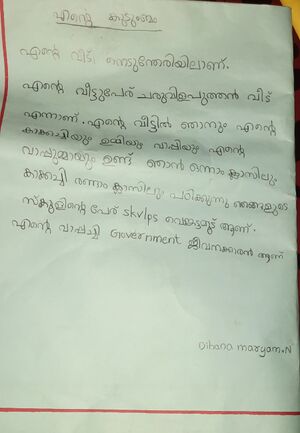 എന്റെ കുടുംബം
എന്റെ വീട് നെടുന്തേരിയിലാണ്.
എന്റെ വീട്ടുപേര് ചരുവിളപുത്തൻ വീട്
എന്നാണ്. എന്റെ വീട്ടിൽ ഞാനും എന്റെ
കാക്കാച്ചിയും ഉമ്മിയും വാപ്പിയും എന്റെ
വാപ്പുമ്മായും ഉണ്ട്. ഞാൻ ഒന്നാം ക്ലാസിലും
കാക്കാച്ചി രണ്ടാം ക്ലാസിലും പഠിക്കുന്നു ഞങ്ങളുടെ
സ്കൂളിന്റെ പേര് skvlps ആണ്.
എന്റെ വാപ്പച്ചി Government ജീവനക്കാരൻ ആണ്
Dihana maryam.N